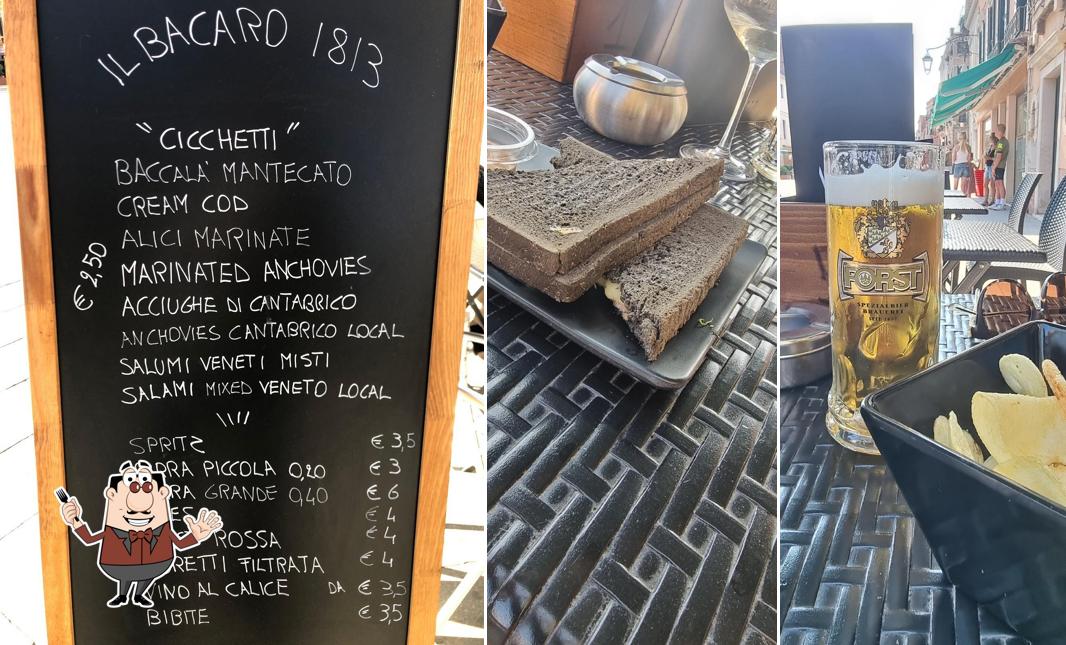 IL BACARO 1813
"CICCHETTI"
BACCALA' MANTECATO
CREAM COD
ALICI MARINATE
MARINATED ANCHOVIES
€ 2,50
ACCIUGHE DI CANTABRICO
ANCHOVIES CANTABRICO LOCAL
SALUMI VENETI MISTI
SALAMI MIXED VENETO LOCAL
SPRITZ € 3,5
PICCOLA 0,20 € 3
GRANDE 0,40 € 6
€ 4
ROSSA € 4
RETTI FILTRATA € 4
VINO AL CALICE DA € 3,5
BIBITE € 3,5
FORST
SPEZIALBIER
BRAUEREI